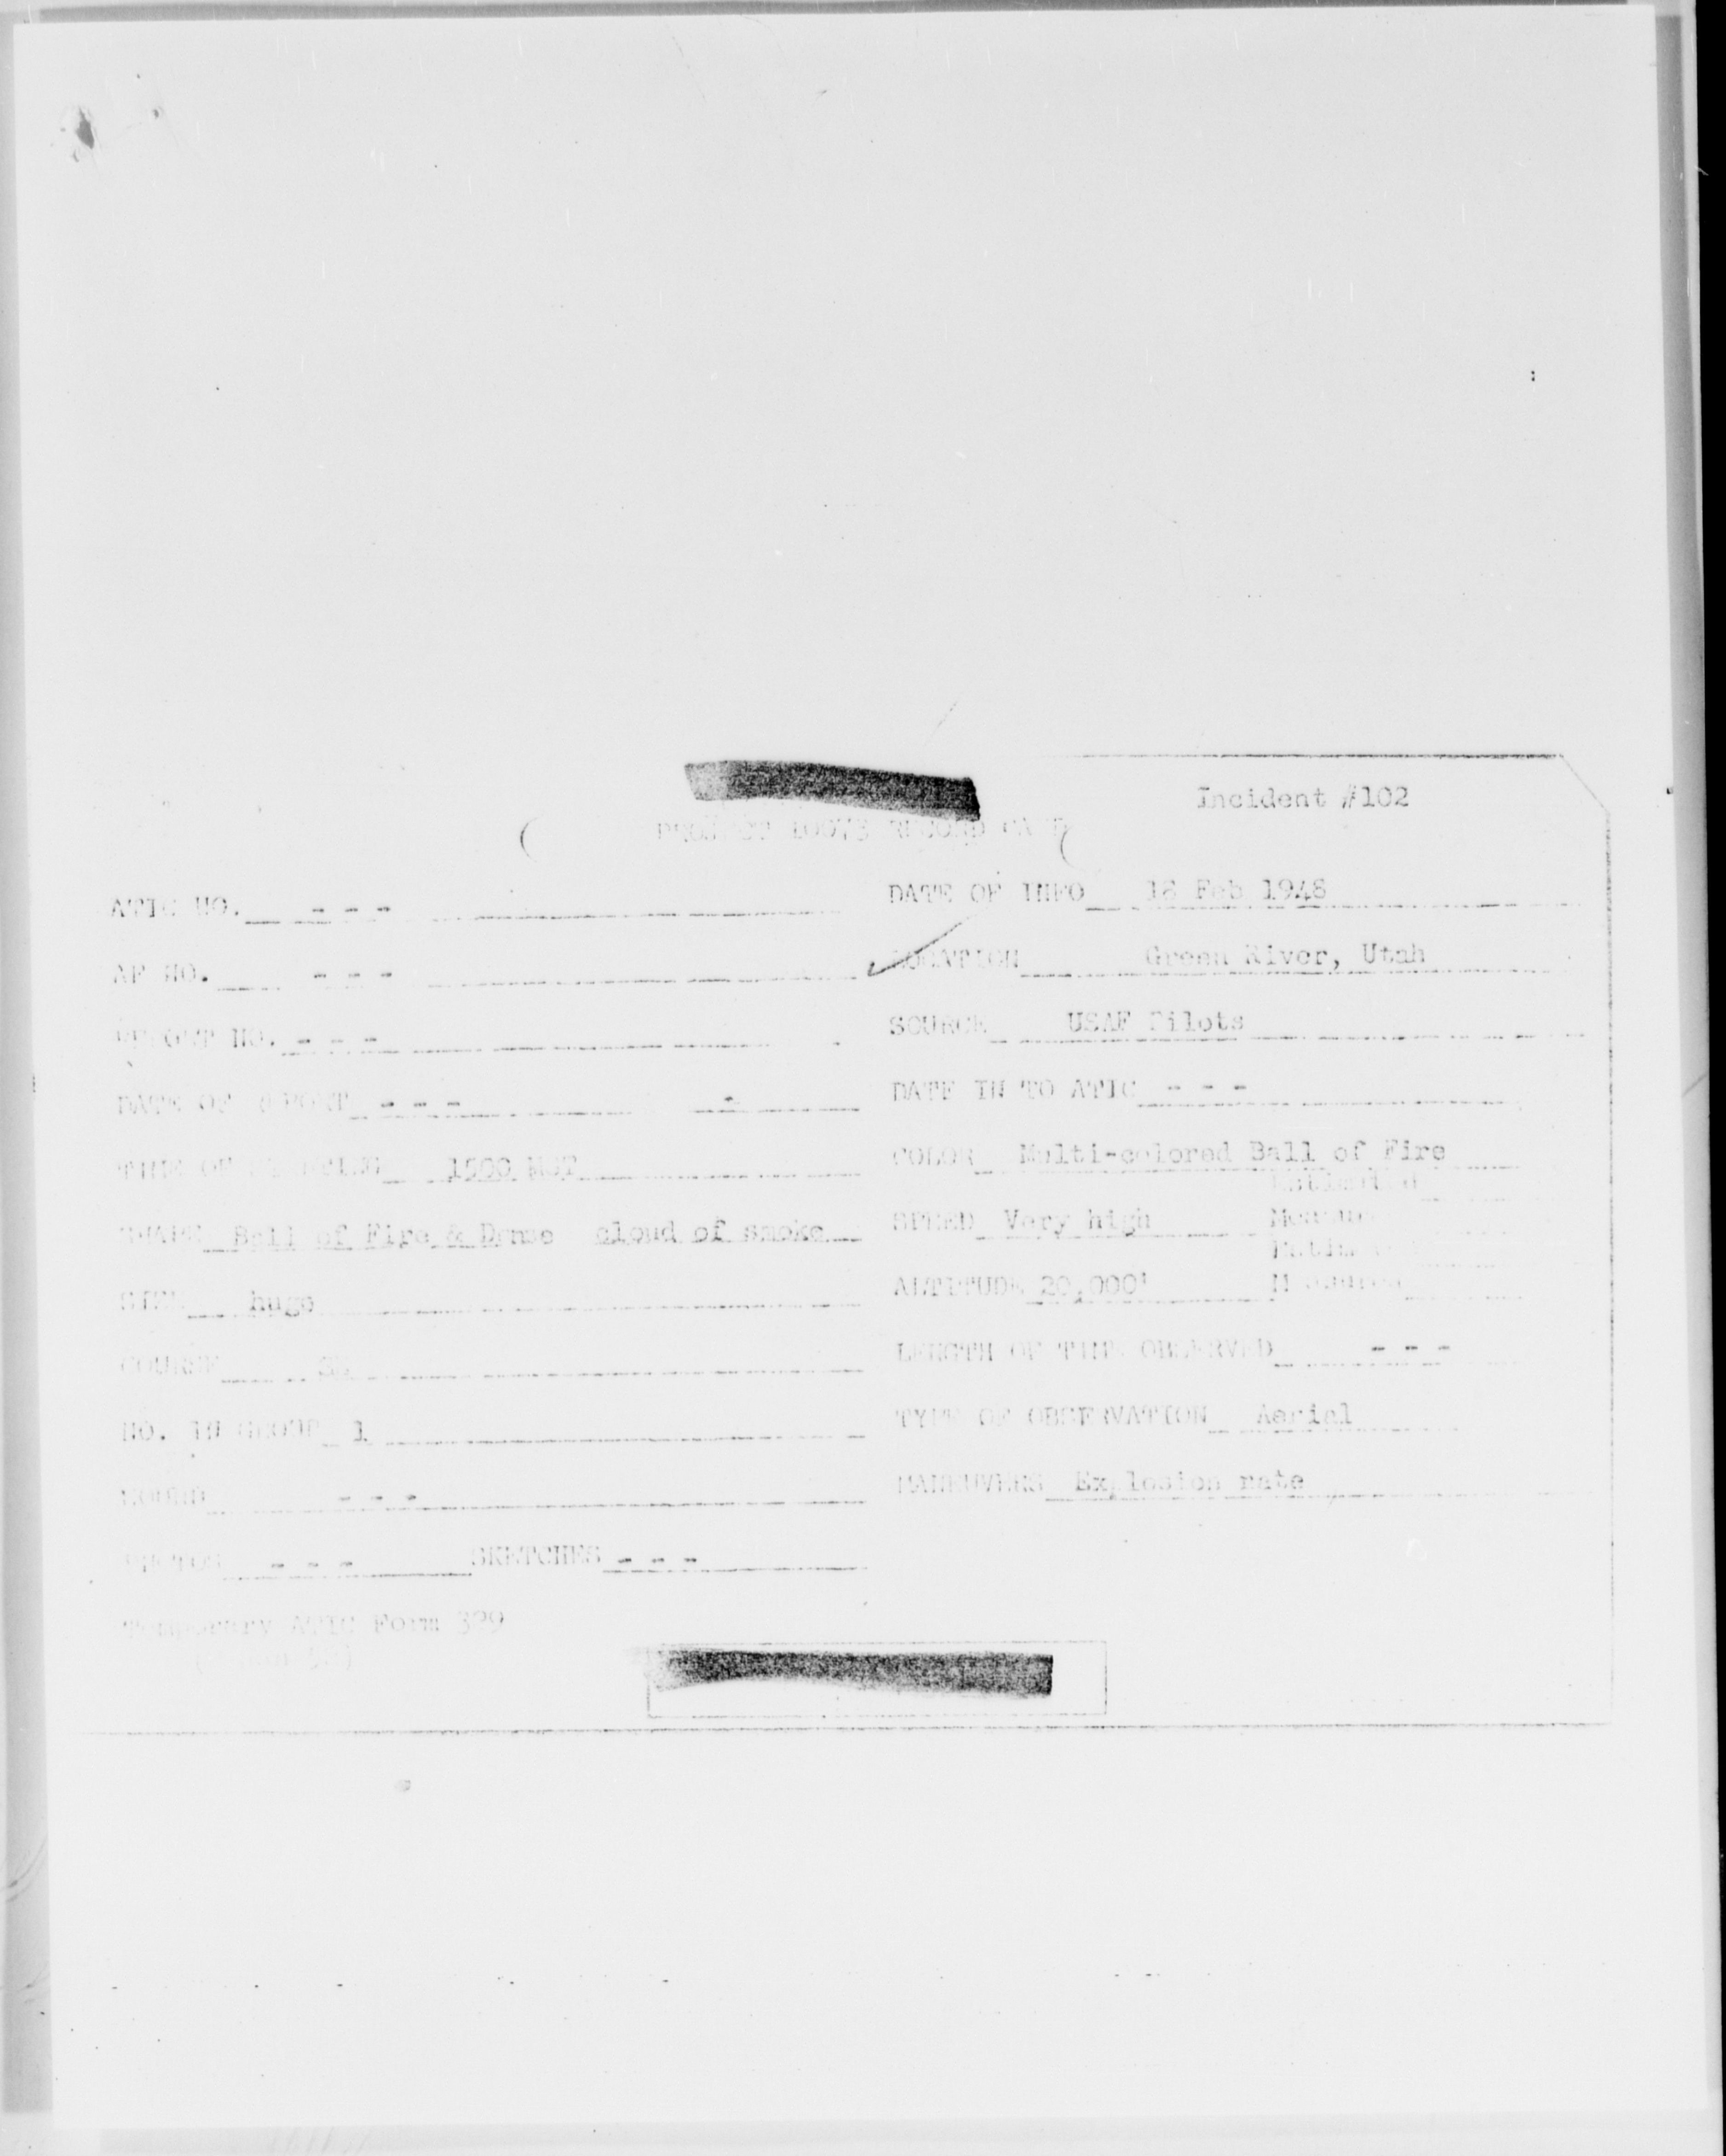 Incident #102
PROJECT 10073 RECORD CARD
ATIC NO. - - -
DATE OF INFO 18 Feb 1948
AF NO. - - -
LOCATION Green River, Utah
REPORT NO. - - -
SOURCE USAF Pilots
DATE OF REPORT - - -
DATE IN TO ATIC - - -
TIME OF SIGHTING 1500 MST
COLOR Multi-colored Ball of Fire
SHAPE Ball of Fire & Dense cloud of smoke
Estimated
SPEED Very high Measured
SIZE huge
Estimated
ALTITUDE 20,000' Measured
COURSE
LENGTH OF TIME OBSERVED - - -
NO. IN GROUP 1
TYPE OF OBSERVATION Aerial
SOUND - - -
MANEUVERS Explosion nate
PHOTOS - - - SKETCHES - - -
Temporary ATIC Form 329